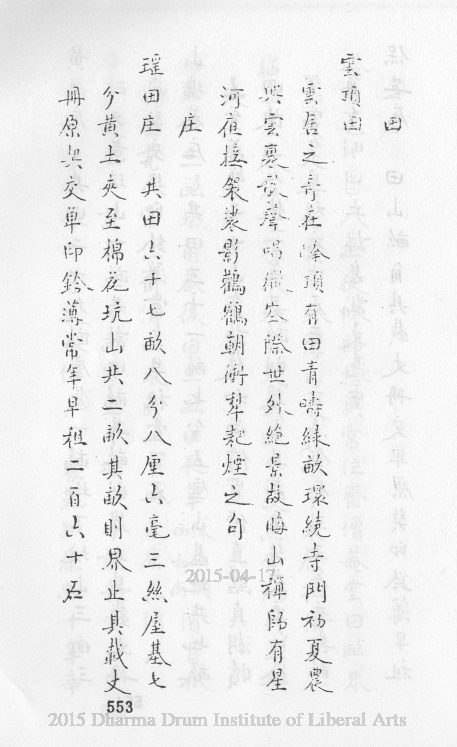 田
雲頂田
雲居之奇在峰頂有田青疇綠畝環繞寺門初夏農
興雲裏歌聲唱徹空際世外絕景故晦山禪師有星
河夜接袈裟影鸛鶴朝衝犁耙煙之句
庄
瑶田庄 共田六十七畝八分八厘六毫三絲屋基七
分黃土夾至棉花坑山共二畝其畝則界止具載丈
冊原契交單印鈐薄常年早租二百六十石
2015-04-17
553
2015 Dharma Drum Institute of Liberal Arts